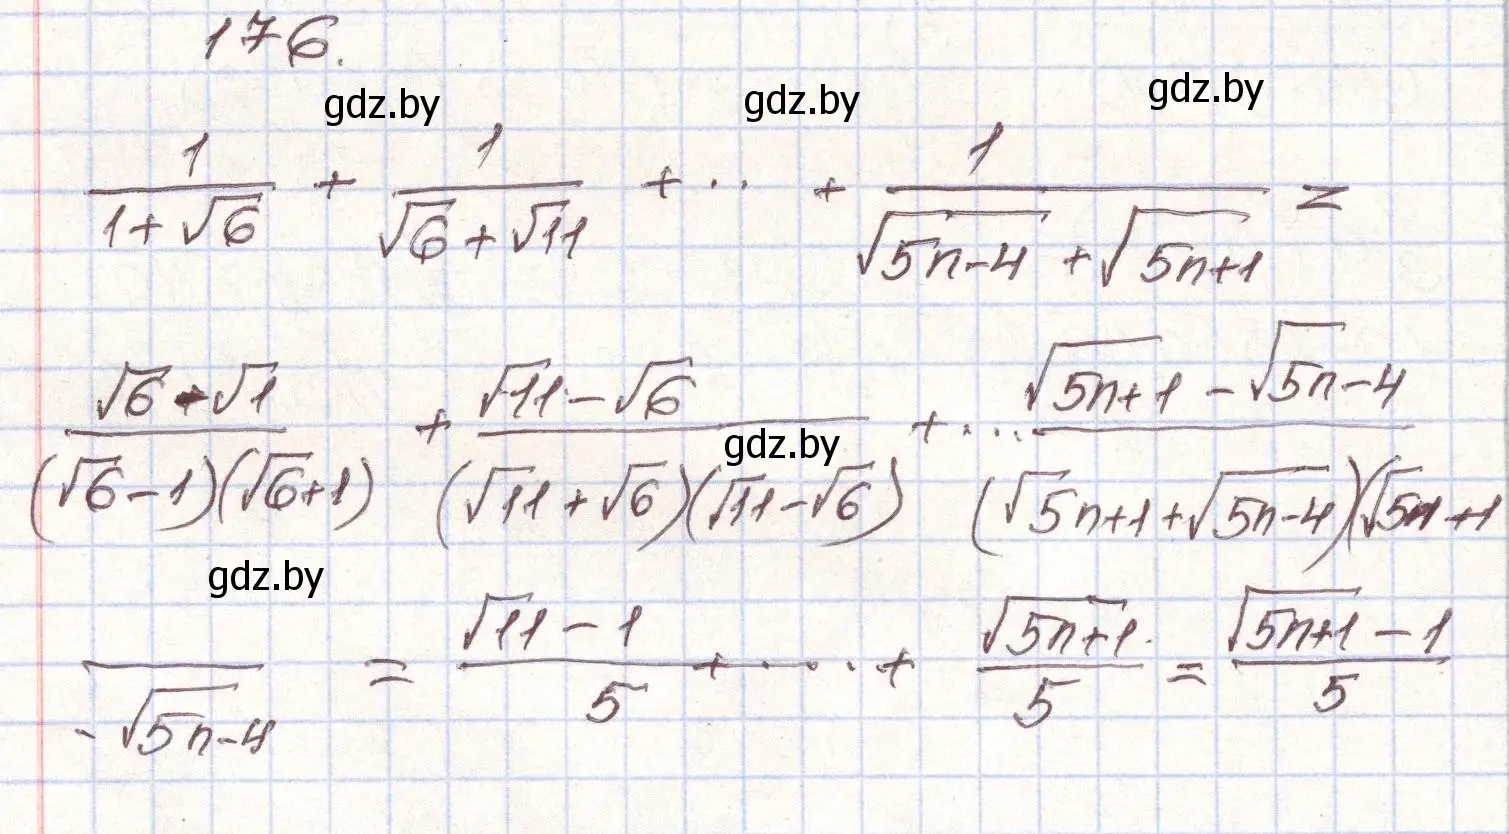 176.
gdz.by gdz.by gdz.by
1/(1+√6) + 1/(√6+√11) + ... + 1/(√(5n-4) + √(5n+1)) =
(√6-√1)/((√6-1)(√6+1)) + (√11-√6)/((√11+√6)(√11-√6)) + ... (√(5n+1) - √(5n-4))/((√(5n+1)+√(5n-4))(√(5n+1)
gdz.by
gdz.by
/(-√(5n-4)) = (√11-1)/5 + ... + √(5n+1)/5 = (√(5n+1)-1)/5